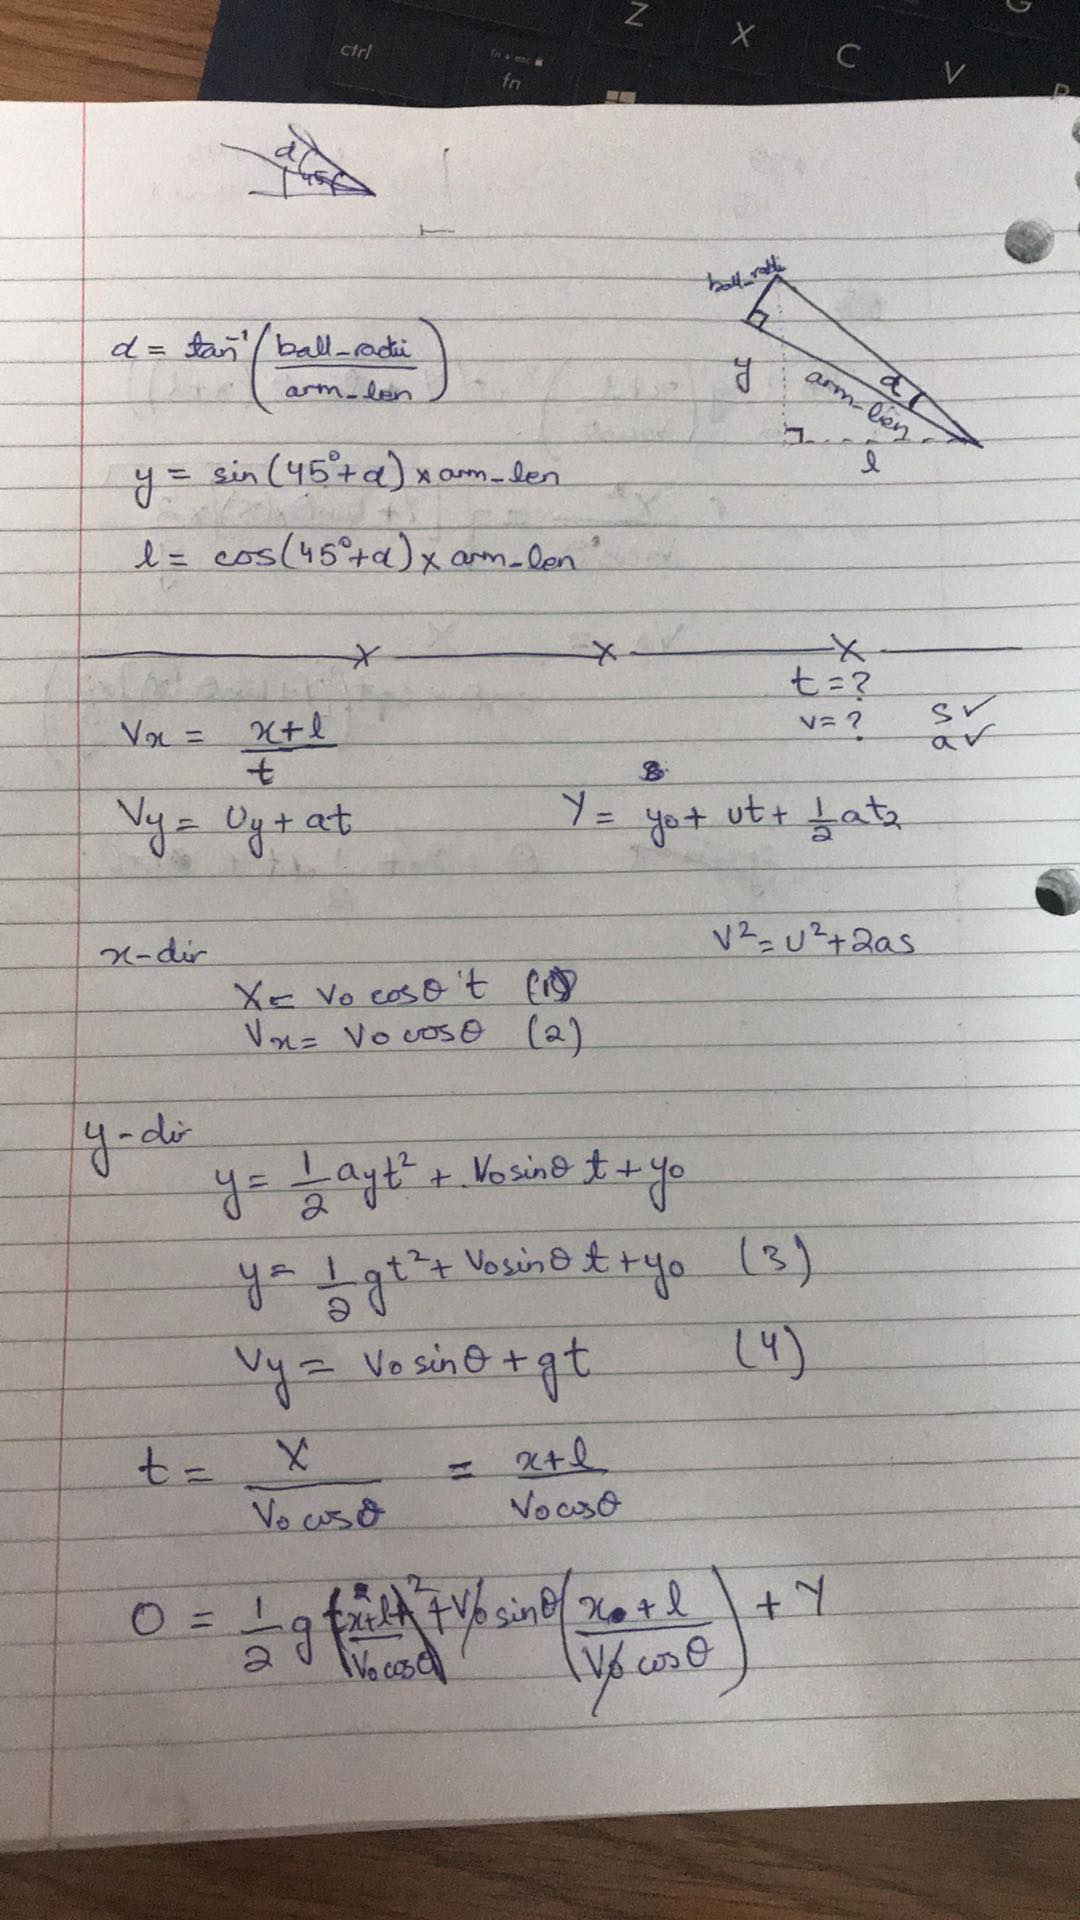 Z X C V G
ctrl fn + esc fn
α 45
ball_radii
α = tan⁻¹ (ball_radii / arm_len)
y α arm_len
l
y = sin(45°+α) x arm_len
l = cos(45°+α) x arm_len
x x x
t = ?
v = ? s ✓
a ✓
Vx = (x+l)/t
Vy = Uy + at
Y = y0 + ut + 1/2 at2
V² = U² + 2as
x-dir
X = V0 cosθ t (1)
Vx = V0 cosθ (2)
y-dir
y = 1/2 ayt² + V0 sinθ t + y0
y = 1/2 gt² + V0 sinθ t + y0 (3)
Vy = V0 sinθ + gt (4)
t = X/(V0 cosθ) = (x+l)/(V0 cosθ)
0 = 1/2 g ((x+l)/(V0 cosθ))² + V0 sinθ ((x + l)/(V0 cosθ)) + Y